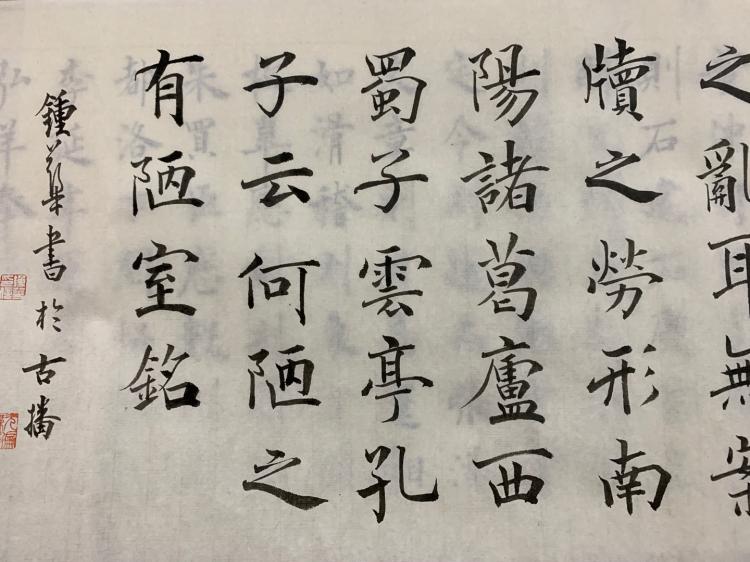 之亂耳無案
牘之勞形南
陽諸葛廬西
蜀子雲亭孔
子云何陋之
有陋室銘
書於古播